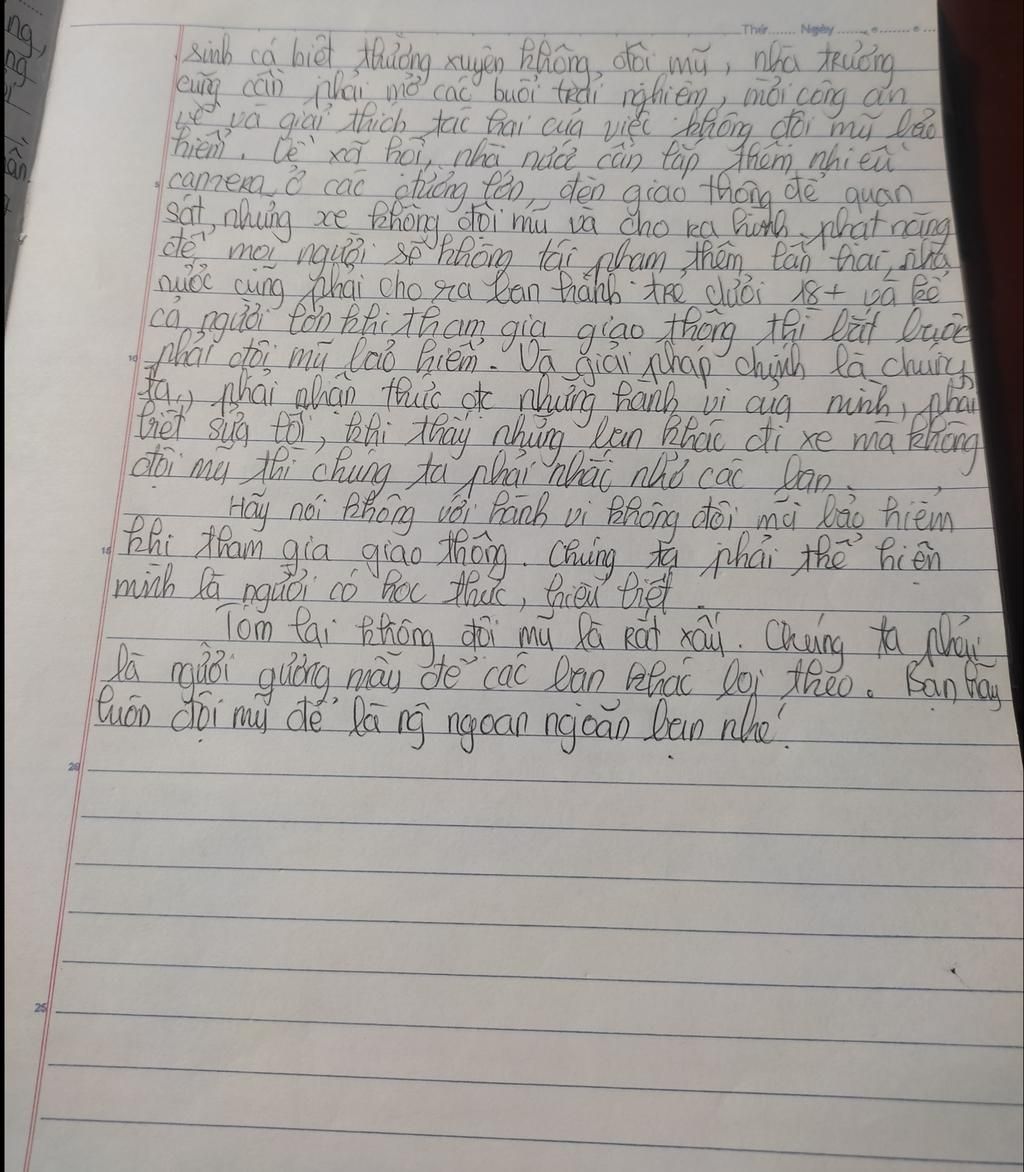 Thứ...... Ngày
sinh cá biệt thường xuyên không đội mũ, nhà trường
cũng cần phải mở các buổi trải nghiệm, mời công an
về và giải thích tác hại của việc không đội mũ bảo
hiểm. Về xã hội, nhà nước cần lắp thêm nhiều
camera ở các đường lớn, đèn giao thông để quan
sát, những xe không đội mũ và cho ra hình phạt nặng
để mọi người sẽ không tái phạm thêm lần hai, nhà
nước cũng phải cho ra ban hành trẻ dưới 18+ và kể
cả người lớn khi tham gia giao thông thì bắt buộc
10 phải đội mũ bảo hiểm. Và giải pháp chính là chúng
ta, phải nhận thức đc những hành vi của mình, phải
biết sửa lỗi, khi thấy những bạn khác đi xe mà không
đội mũ thì chúng ta phải nhắc nhở các bạn.
Hãy nói không với hành vi không đội mũ bảo hiểm
15 khi tham gia giao thông. Chúng ta phải thể hiện
mình là người có học thức, hiểu biết.
Tóm lại không đội mũ là rất xấu. Chúng ta phải
là người gương mẫu để các bạn khác loi theo. Bạn hãy
luôn đội mũ để là ng ngoan ngoãn bạn nhé!
20
25